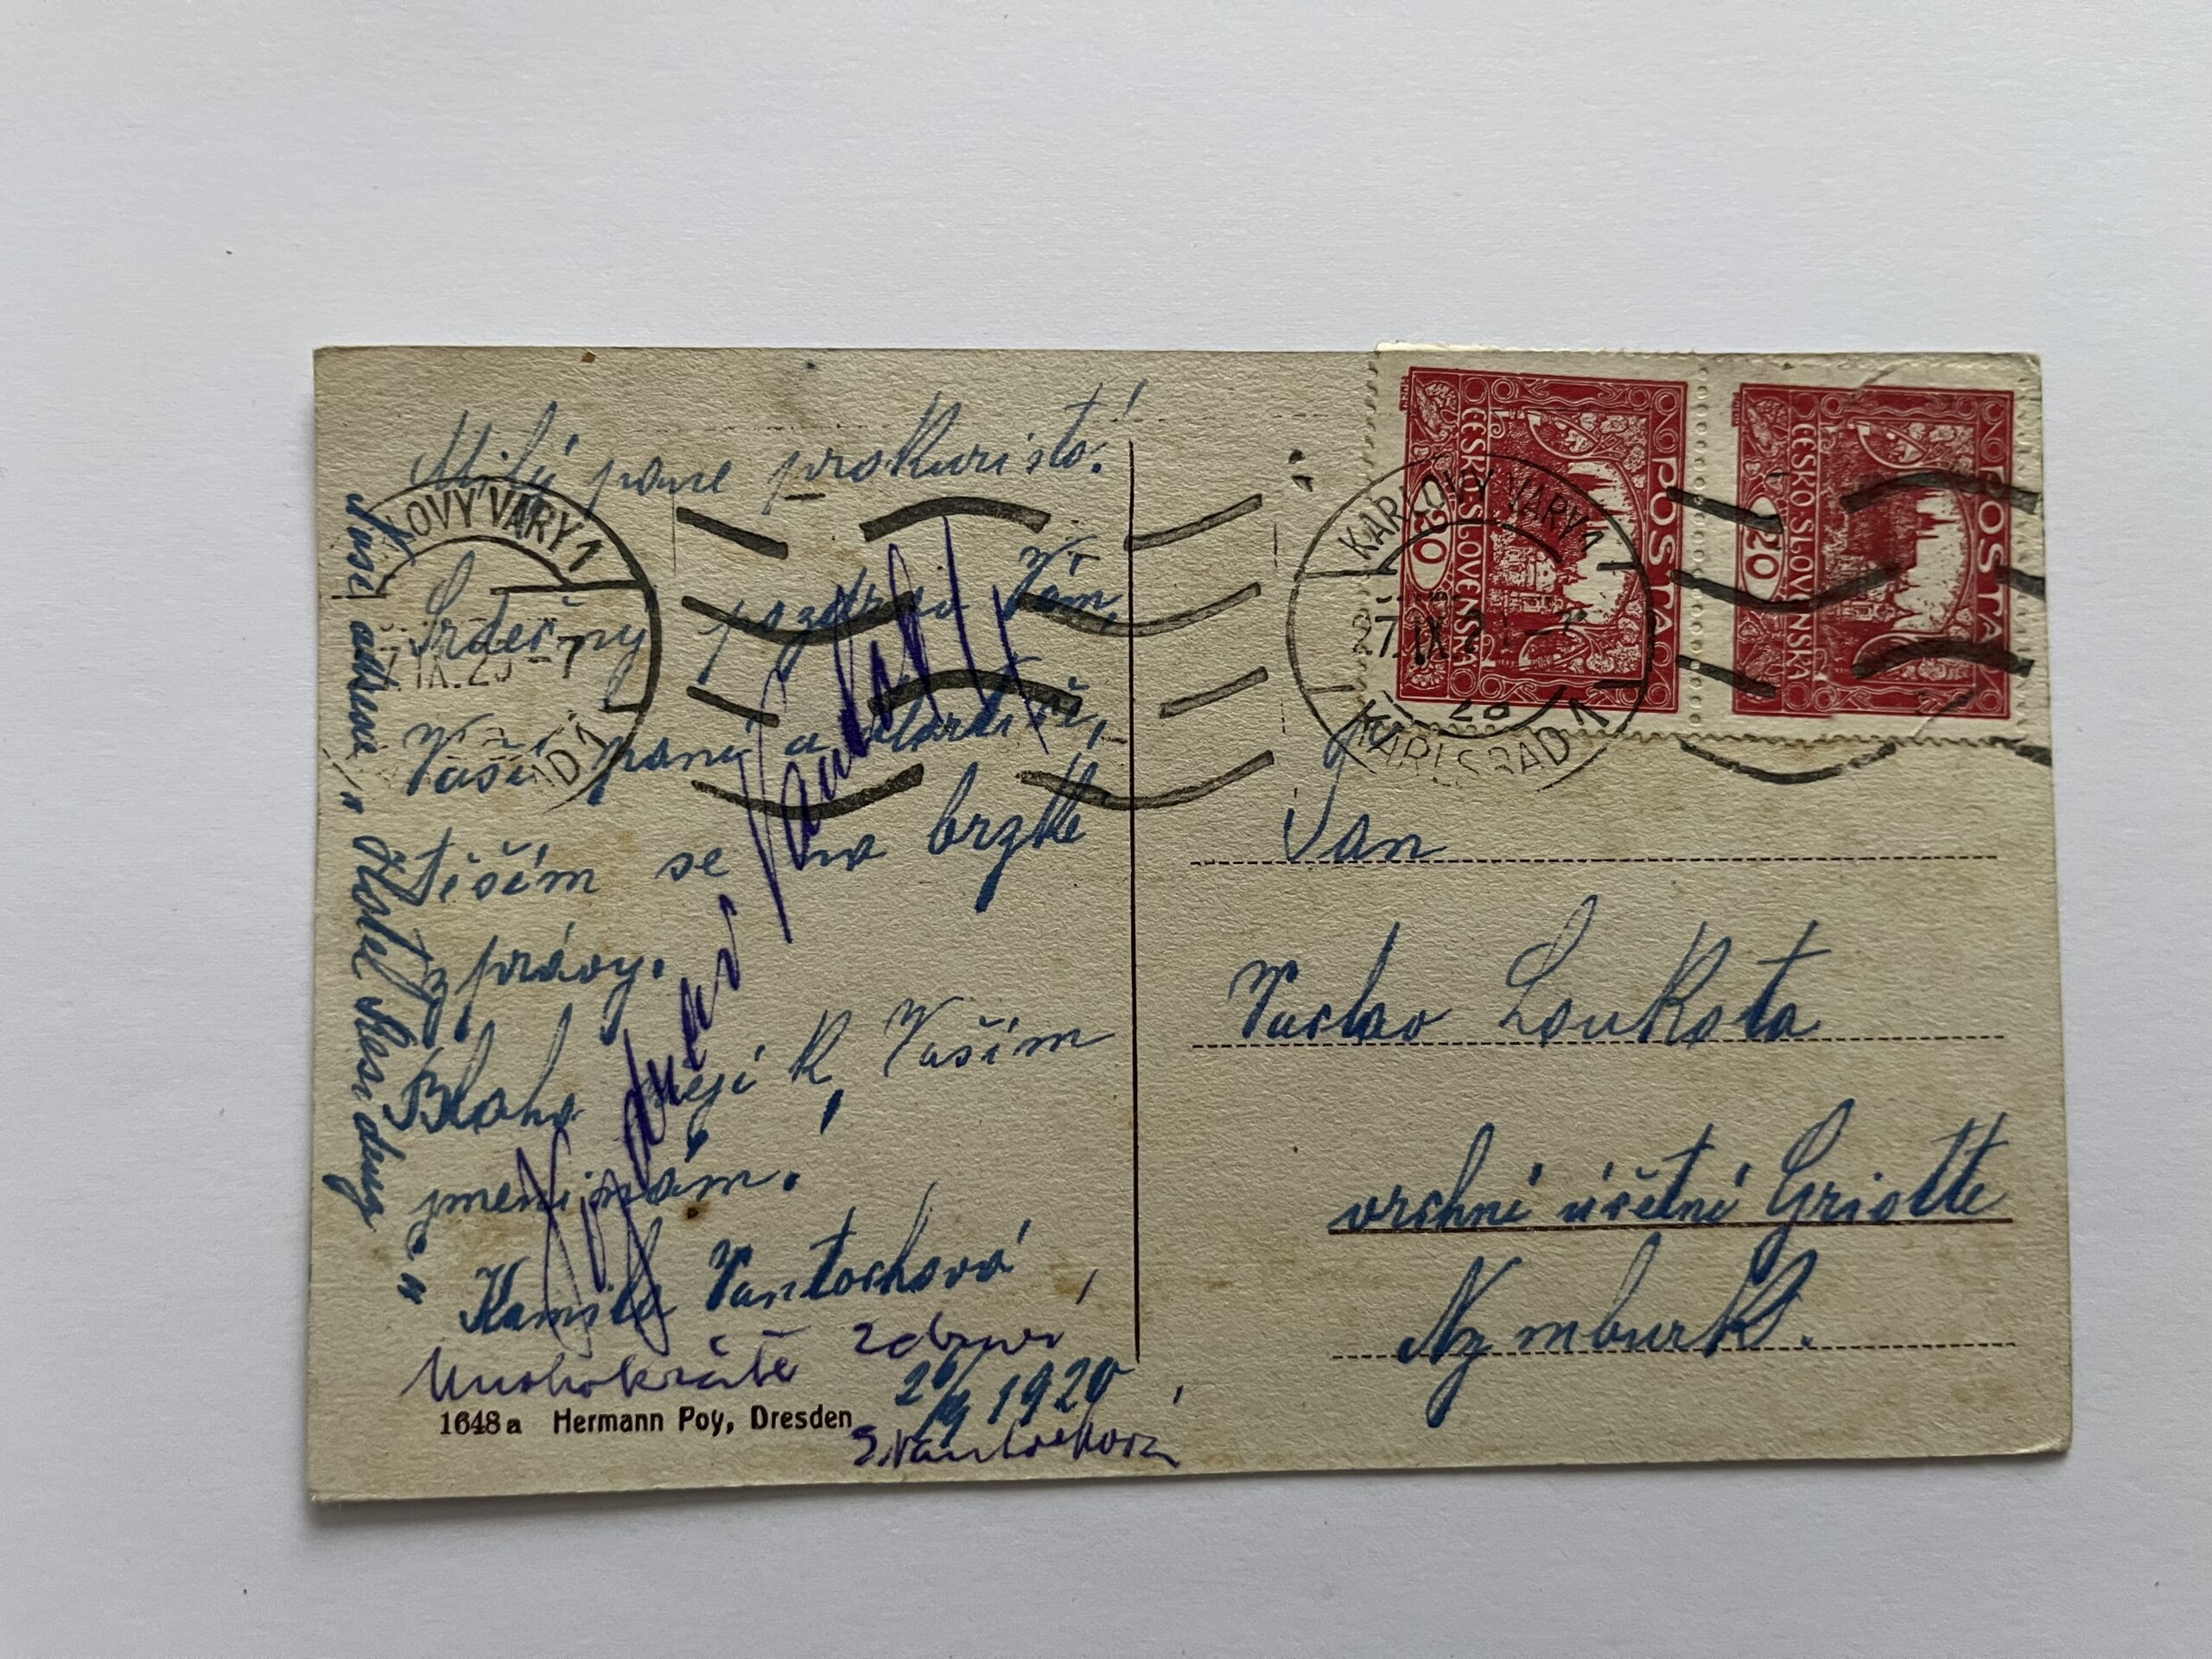 Milý pane prokuristo!
Srdečný pozdrav Vám,
Vaší paní a
těším se na brzké
zprávy.
Blaho přeji k Vašim
jmeninám.
Kamila Vantochová
Mnohokráte zdraví
26/9 1920
S. Vantochová
Pozdrav
Naše adresa „Hotel
1648a Hermann Poy, Dresden
KARLOVY VARY 1
27.IX.20-7
KARLSBAD 1
LOVY VARY 1
7.IX.20-7
AD 1
POSTA
ČESKO-SLOVENSKÁ
20
POSTA
ČESKO-SLOVENSKÁ
20
Pan
Václav Loukota
vrchní účetní Griotte
Nymburk.